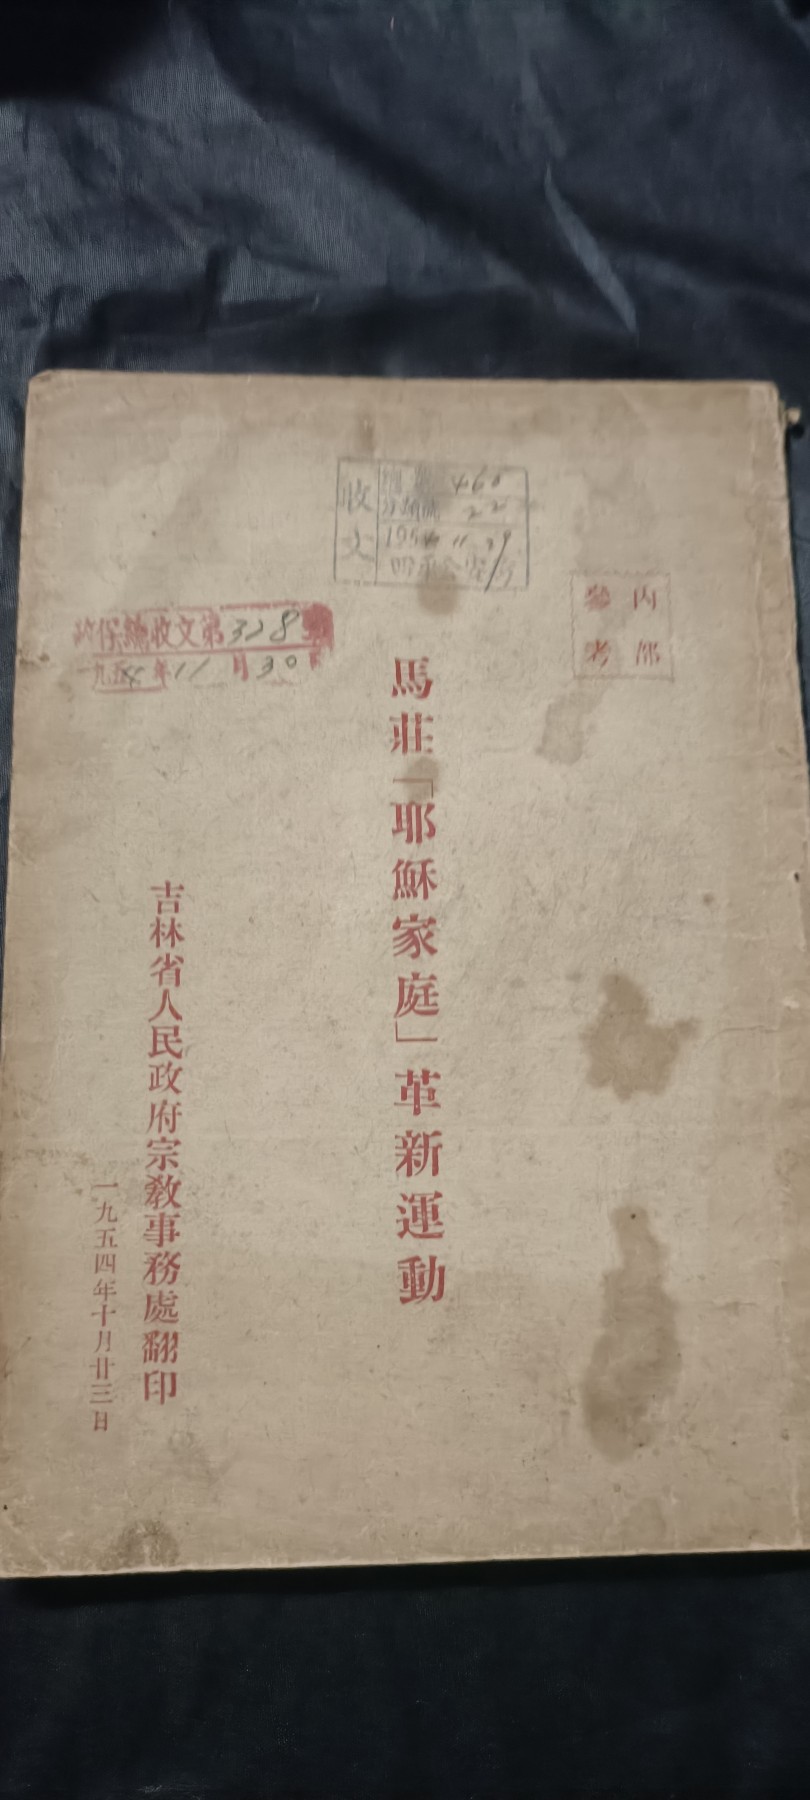 內部
參考
收文
460
分類號 22
1954 11 29
政保總收文第328號
一九五4年11月30日
馬莊「耶穌家庭」革新運動
吉林省人民政府宗教事務處翻印
一九五四年十月廿三日